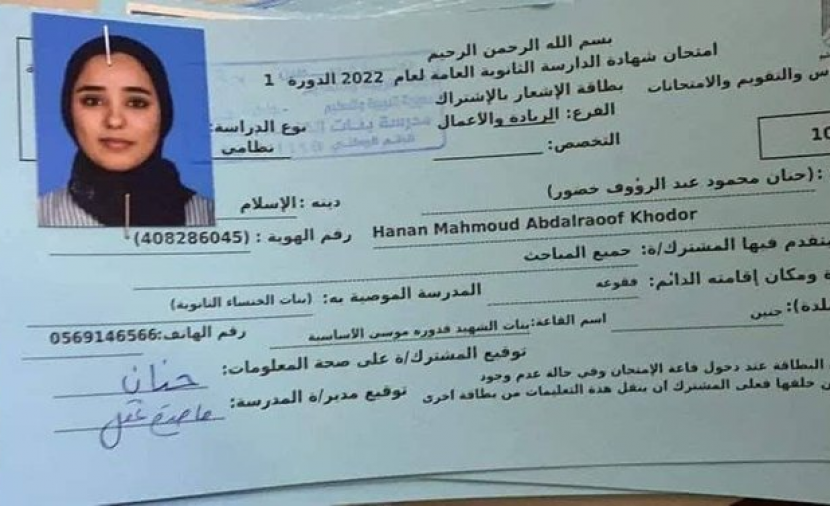 بسم الله الرحمن الرحيم
امتحان شهادة الدارسة الثانوية العامة لعام 2022 الدورة 1
س والتقويم والامتحانات
بطاقة الإشعار بالإشتراك
الفرع: الريادة والأعمال
نوع الدراسة:
نظامي
التخصص:
10
مدرسة بنات
:(حنان محمود عبد الرؤوف خضور)
دينه :الإسلام
Hanan Mahmoud Abdalraoof Khodor
رقم الهوية : (408286045)
متقدم فيها المشترك/ة: جميع المباحث
ة ومكان إقامته الدائم: فقوعه
المدرسة الموصية به: (بنات الخنساء الثانوية)
لدة): جنين
اسم القاعة:بنات الشهيد قدوره موسى الأساسية
رقم الهاتف:0569146566
توقيع المشترك/ة على صحة المعلومات:
حنان
البطاقة عند دخول قاعة الإمتحان وفي حالة عدم وجود
ن خلفها فعلى المشترك ان ينقل هذة التعليمات من بطاقة اخرى
توقيع مدير/ة المدرسة: